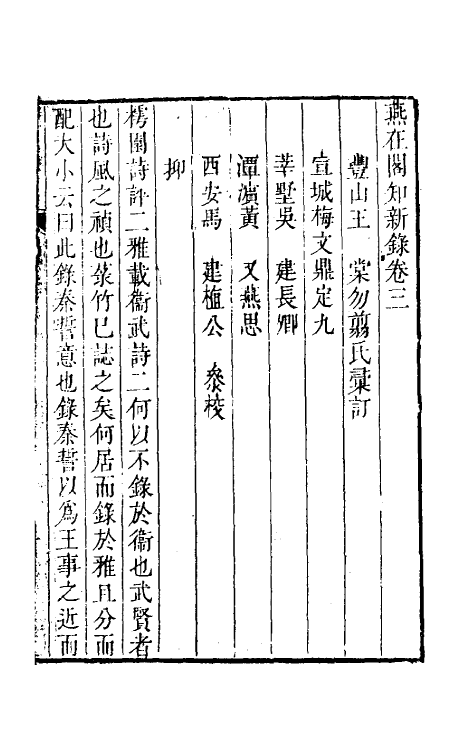 燕在閣知新錄卷三
豐山王　棠勿翦氏彙訂
宣城梅文鼎定九
莘墅吳　建長卿
潭濱黃　又燕思
西安馬　建植公　叅校
抑
樗園詩評二雅載衞武詩二何以不錄於衞也武賢者
也詩風之禎也菉竹已誌之矣何居而錄於雅且分而
配大小云曰此錄秦誓意也錄秦誓以爲王事之近而